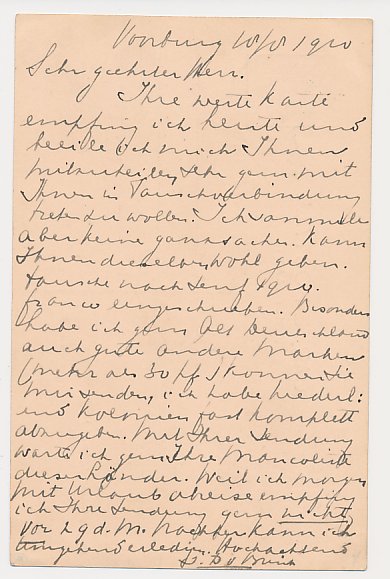 Voorburg 10/8 1910
Sehr geehrter Herr.
Ihre werte Karte
empfing ich heute und
beeile ich mich Ihnen
mitzuteilen sehr gern mit
Ihnen in Tauschverbindung
treten zu wollen. Ich sammele
aber keine ganzsachen. Kann
Ihnen dieselben wohl geben.
tausche nach Senf 1910.
franco eingeschrieben. Besonders
habe ich gern Alt Deutschland
auch gute andere Marken
(mehr als 30 pf) Können Sie
mir senden, ich habe Niederl:
und Kolonien fast komplett
abzugeben. Mit Ihrer Sendung
warte ich gern Ihre Mancoliste
Weil ich morgen
mit Urlaub abreise empfing
ich Ihre Sendung gern nicht
vor d. M. Nachher kann ich
umgehend erledigen. Hochachtend